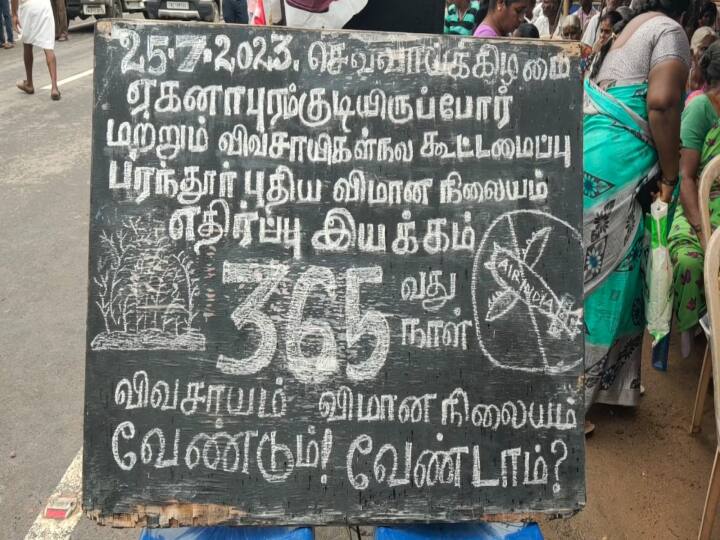 25.7.2023. செவ்வாய்க்கிழமை
ஏகனாபுரம்குடியிருப்போர்
மற்றும் விவசாயிகள்நல கூட்டமைப்பு
பரந்தூர் புதிய விமான நிலையம்
எதிர்ப்பு இயக்கம்
365 வது நாள்
AIR INDIA
விவசாயம் விமான நிலையம்
வேண்டும்! வேண்டாம்?